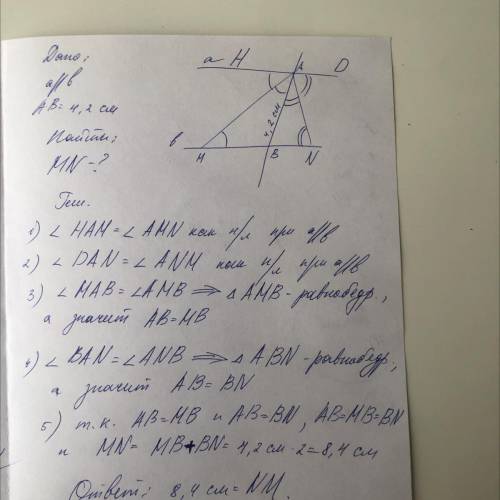 Дано:
a||b
AB = 4,2 см
Найти:
MN - ?
a H A D
4,2 см
b M B N
Реш.
1) ∠ HAM = ∠ AMN как н/л при a||b
2) ∠ DAN = ∠ ANM как н/л при a||b
3) ∠ MAB = ∠ AMB ⇒ △ AMB - равнобедр.,
а значит AB = MB
4) ∠ BAN = ∠ ANB ⇒ △ ABN - равнобедр.,
а значит AB = BN
5) т.к. AB = MB и AB = BN, AB = MB = BN
и MN = MB + BN = 4,2 см · 2 = 8,4 см
Ответ: 8,4 см = NM.